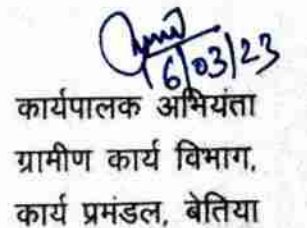 6/03/23
कार्यपालक अभियंता
ग्रामीण कार्य विभाग,
कार्य प्रमंडल, बेतिया